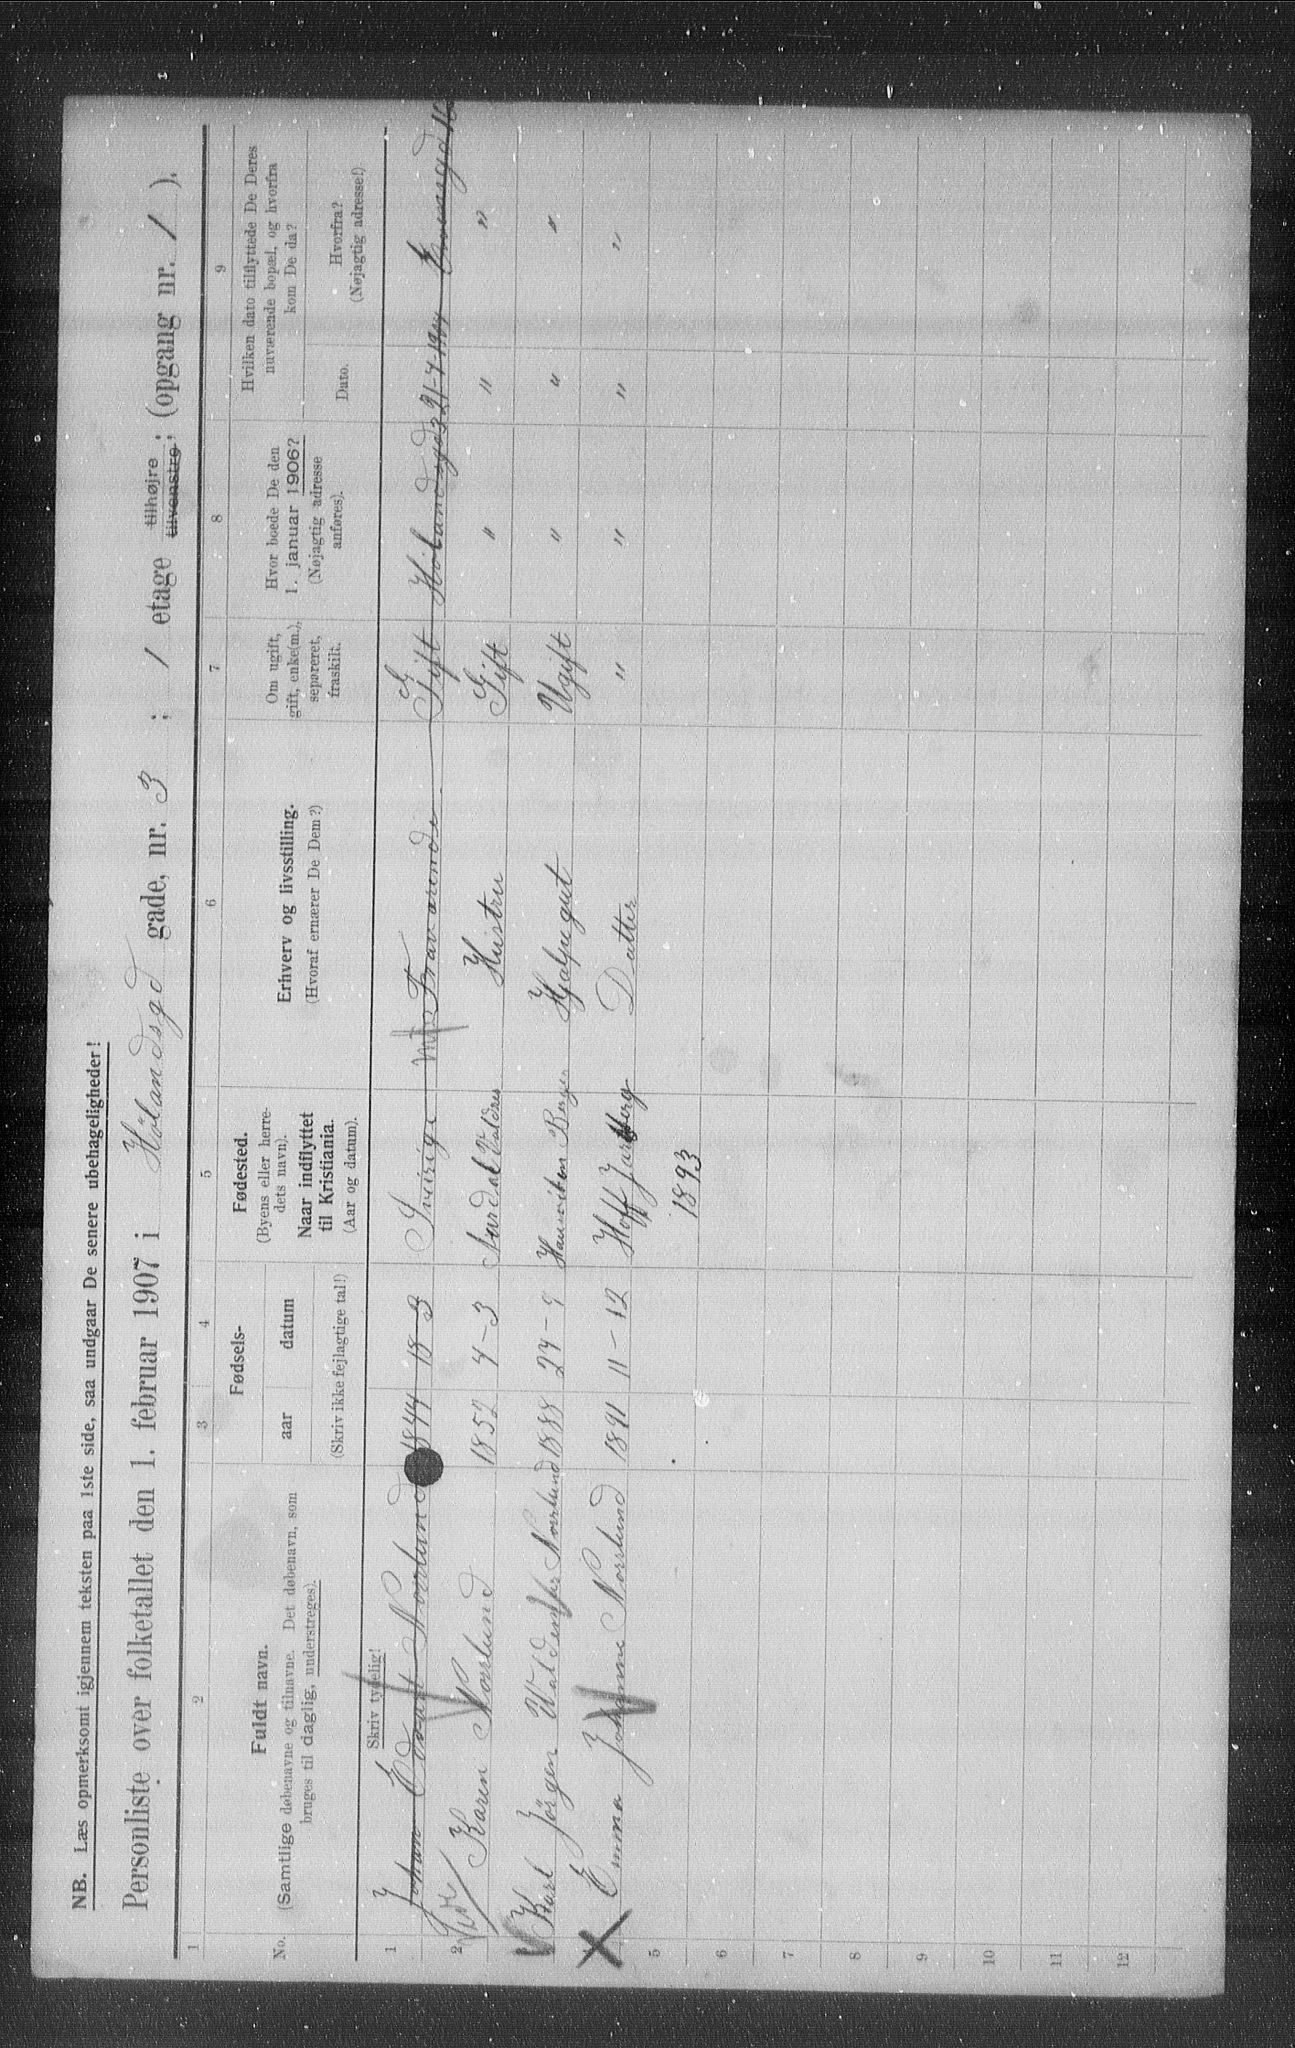 NB. Læs opmerksomt igjennem teksten paa 1ste side, saa undgaar De senere ubehageligheder!
Personliste over folketallet den 1. februar 1907 i Hölandsgd gade, nr. 3 ; 1 etage tilhøjre tilvenstre; (opgang nr. 1 ).
1 2 3 4 5 6 7 8 9
No.
Fuldt navn.
(Samtlige døbenavne og tilnavne. Det døbenavn, som
bruges til daglig, understreges).
Fødsels-
aar datum
(Skriv ikke fejlagtige tal!)
Fødested.
(Byens eller herre-
dets navn).
Naar indflyttet
til Kristiania.
(Aar og datum).
Erhverv og livsstilling.
(Hvoraf ernærer De Dem?)
Om ugift,
gift, enke(m.),
sepøreret,
fraskilt.
Hvor boede De den
1. januar 1906?
(Nøjagtig adresse
anføres).
Hvilken dato tilflyttede De Deres
nuværende bopæl, og hvorfra
kom De da?
Dato.
Hvorfra?
(Nøjagtig adresse!)
Skriv tydelig!
1 Johan Edvart Norlund 1844 18 3 Sverige Fraværende Gift Hölandsgd 3 21-7-1904
2 Karen Norlund 1852 4-3 Aurdal Valdres Hustru Gift " " "
Karl Jörgen Waldemar Norlund 1888 24-9 Bergen Hjalpegut Ugift " " "
Emma Johanne Norlund 1891 11-12 Hoff Jarlsberg Datter " " " "
1893
5
6
7
8
9
10
11
12